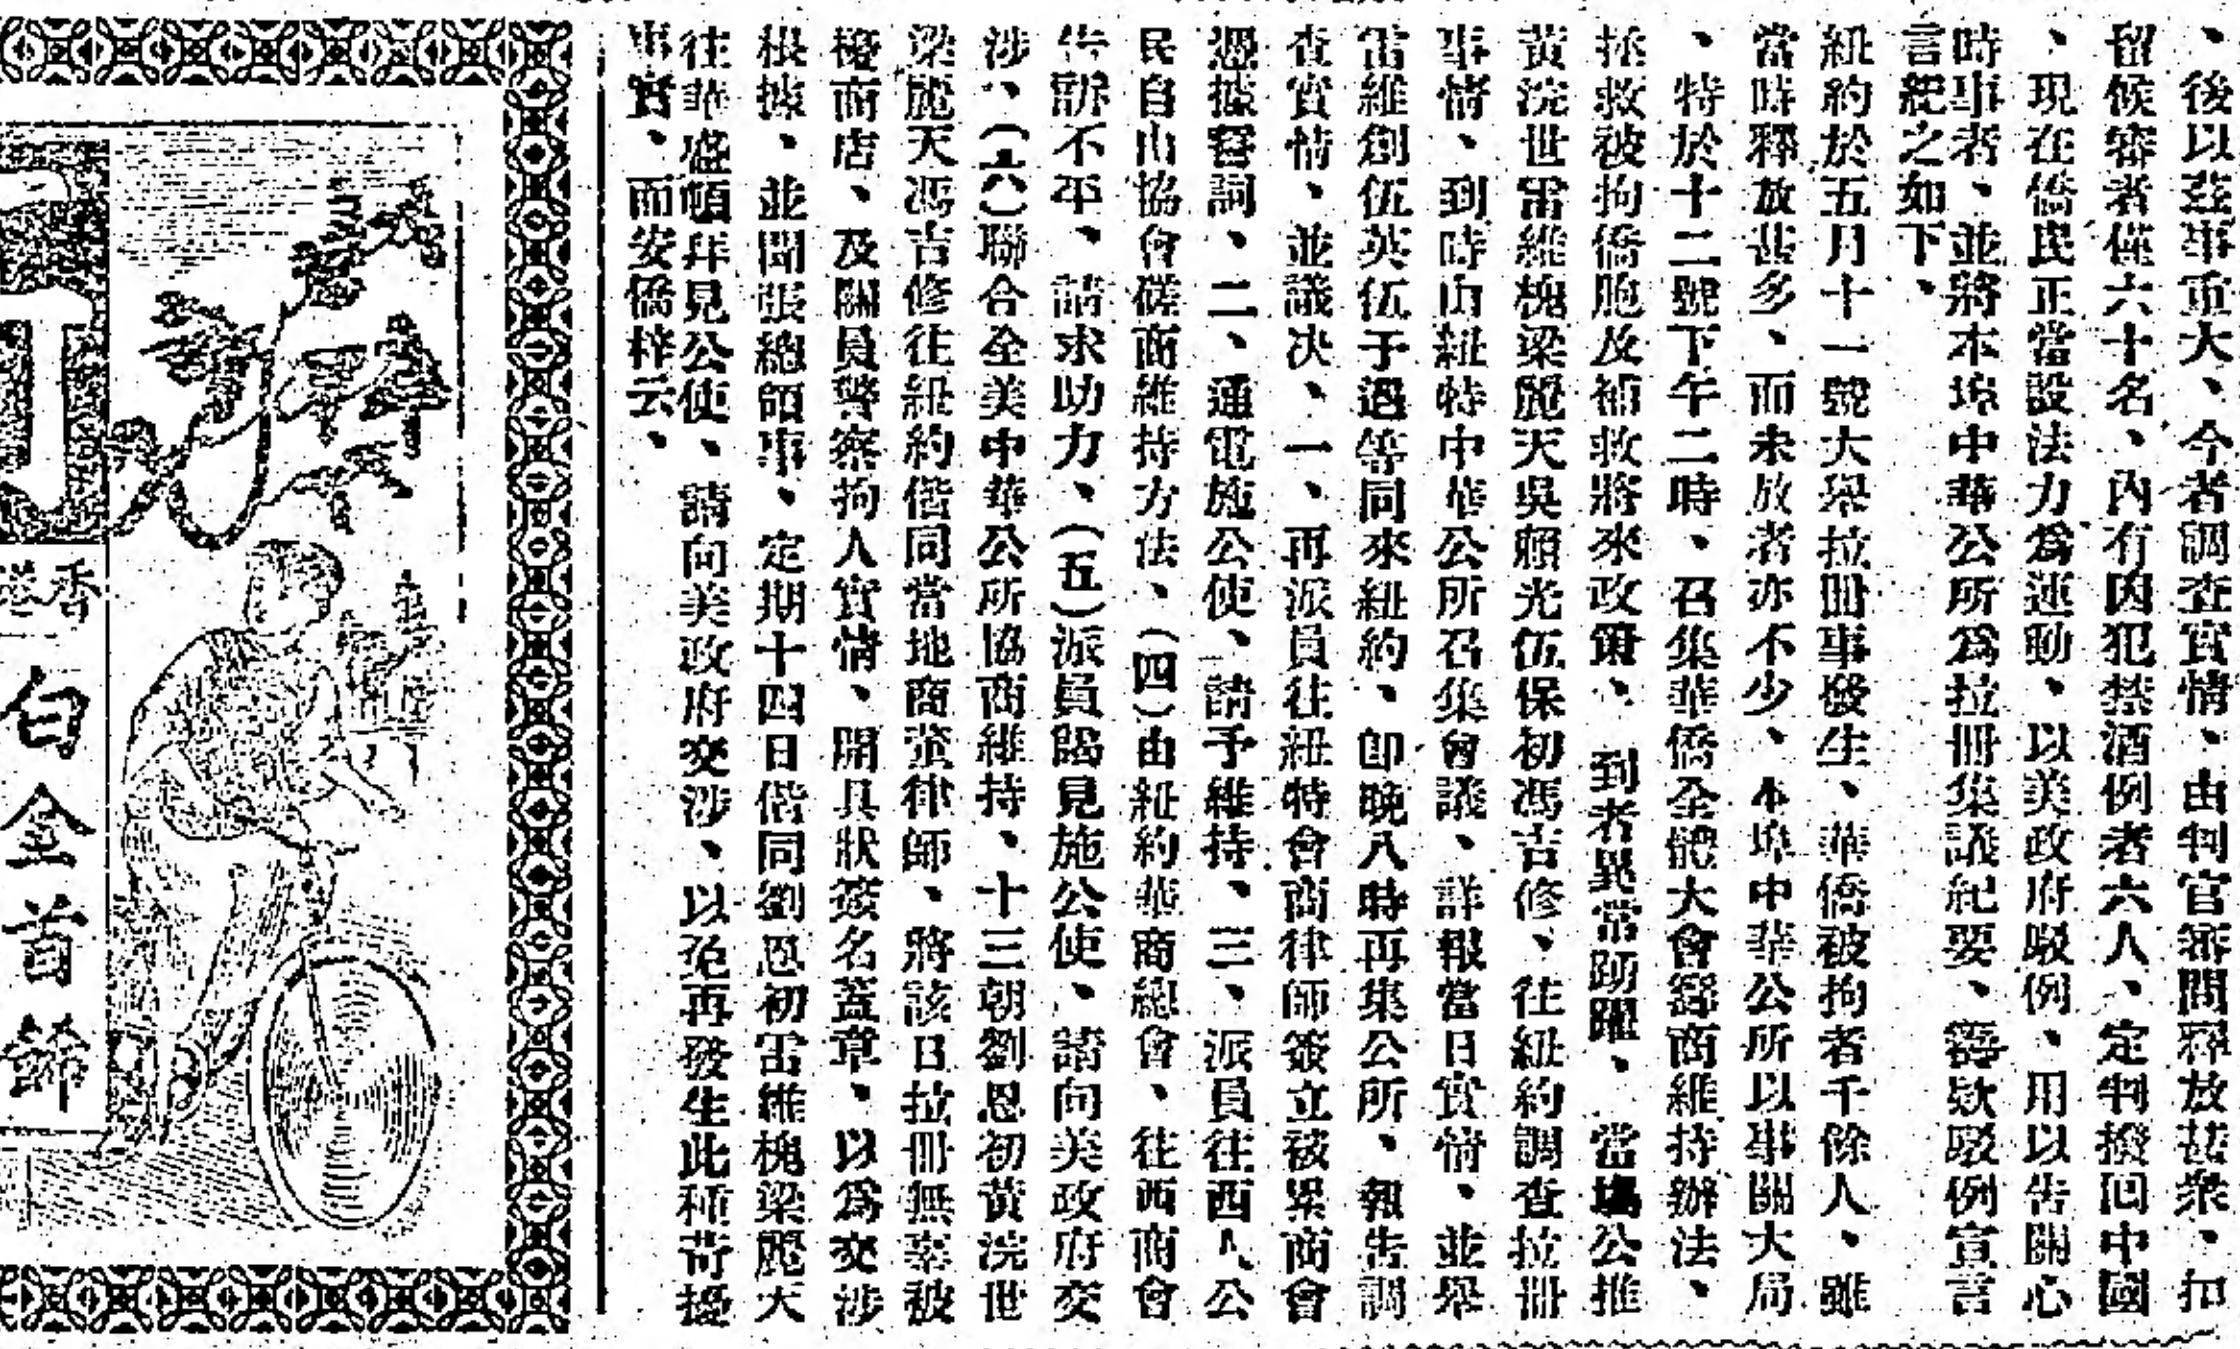 、後以茲事重大、今者調查實情、由判官審問釋放甚衆、扣
留候審者僅六十名、內有因犯禁酒例者六人、定判撥回中國
、現在僑民正當設法力爲運動、以美政府駁例、用以告關心
時事者、並將本埠中華公所爲拉冊集議紀要、籌欵駁例宣言
言紀之如下、
紐約於五月十一號大舉拉冊事發生、華僑被拘者千餘人、雖
當時釋放甚多、而未放者亦不少、本埠中華公所以事關大局
、特於十二號下午二時、召集華僑全體大會籌商維持辦法、
拯救被拘僑胞及補救將來政策、到者異常踴躍、當塲公推
黃浣世雷維槐梁麗天吳顯光伍保初馮吉修、往紐約調查拉冊
事情、到時由紐特中華公所召集會議、詳報當日實情、並舉
雷維創伍英伍于遇等同來紐約、卽晚八時再集公所、報告調
查實情、並議决、一、再派員往紐特會商律師簽立被累商會
憑據誓詞、二、通電施公使、請予維持、三、派員往西人公
民自由協會磋商維持方法、(四)由紐約華商總會、往西商會
告訴不平、請求助力、(五)派員謁見施公使、請向美政府交
涉、(六)聯合全美中華公所協商維持、十三朝劉恩初黃浣世
梁麗天馮吉修往紐約偕同當地商董律師、將該日拉冊無辜被
擾商店、及關員警察拘人實情、開具狀簽名蓋章、以爲交涉
根據、並聞張總領事、定期十四日偕同劉恩初雷維槐梁麗天
往華盛頓拜見公使、請向美政府交涉、以免再發生此種苛擾
事實、而安僑梓云、
香港
白金首飾